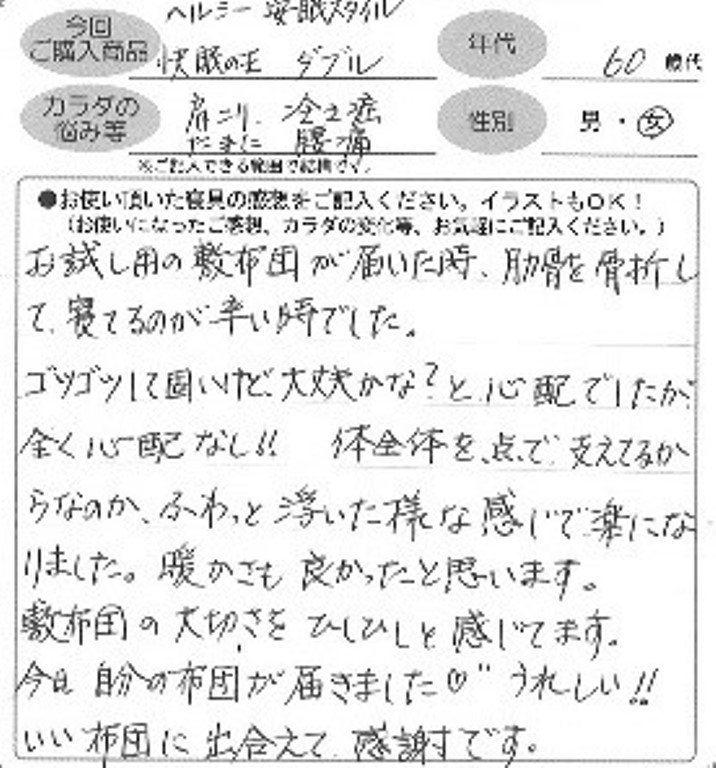 ヘルシー 安眠スタイル
今回
ご購入商品
快眠の王 ダブル
年代
60 歳代
カラダの
悩み等
肩こり、冷え症
たまに 腰痛
性別
男・女
※ご記入できる範囲で結構です。
●お使い頂いた寝具の感想をご記入ください。イラストもOK！
（お使いになったご感想、カラダの変化等、お気軽にご記入ください。）
お試し用の敷布団が届いた時、肋骨を骨折し
て、寝てるのが辛い時でした。
ゴツゴツして固いけど、大丈夫かな?と、心配でしたが、
全く心配なし!! 体全体を、点で、支えてるか
らなのか、ふわっと浮いた様な感じで楽にな
りました。暖かさも良かったと思います。
敷布団の大切さをひしひしと感じてます。
今日 自分の布団が届きました♡" うれしい!!
いい布団に出合えて、感謝です。